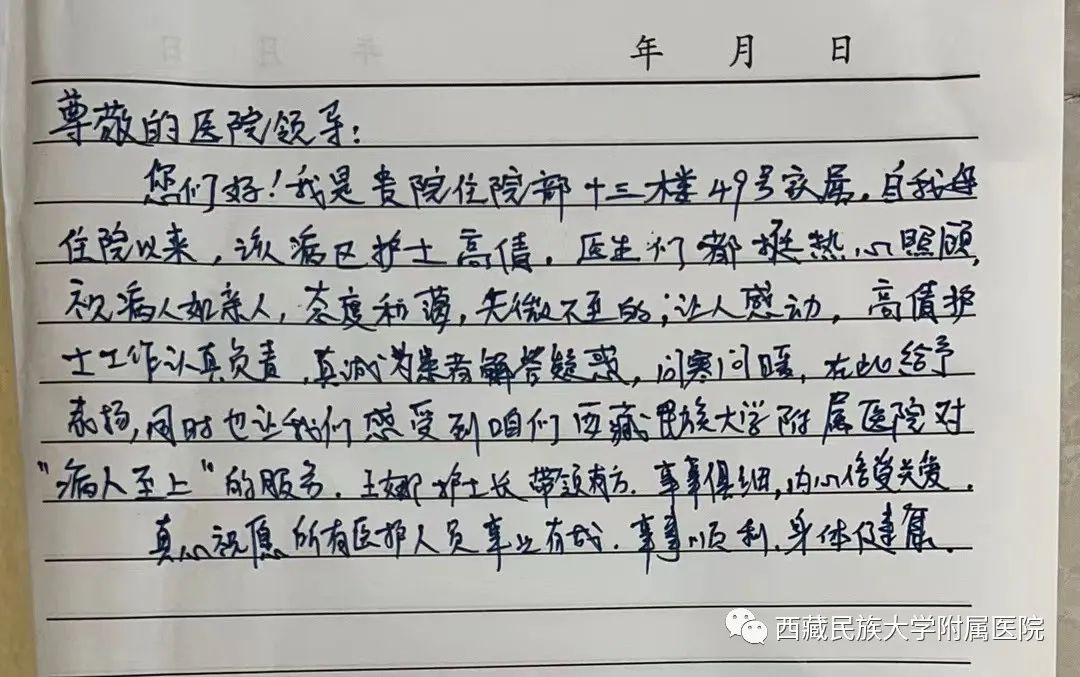 年 月 日
尊敬的医院领导:
您们好!我是贵院住院部十三楼49号家属,自我母
住院以来,该病区护士高倩,医生们都挺热心照顾,
视病人如亲人,态度和蔼,无微不至的;让人感动,高倩护
士工作认真负责,真诚为患者解答疑惑,问寒问暖,在此给予
表扬,同时也让我们感受到咱们西藏民族大学附属医院对
“病人至上”的服务.王娜护士长带领有方.事事俱细,内心倍受关爱.
真心祝愿所有医护人员事业有成.事事顺利.身体健康.
西藏民族大学附属医院